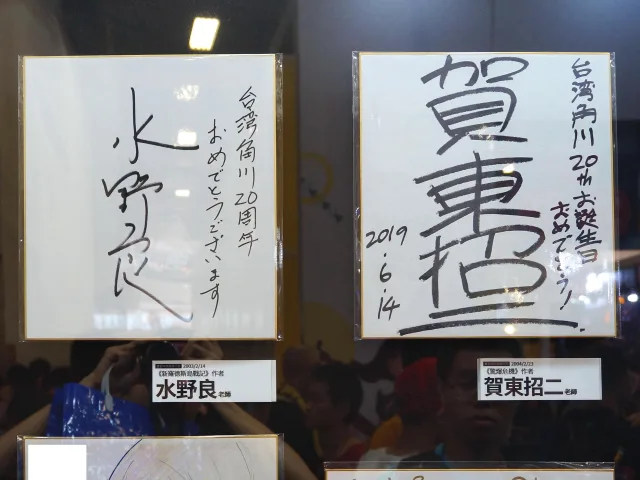 台湾角川20周年
おめでとうございます
水野良
台湾角川20thお誕生日
おめでとう!
賀東招二
2019・6・14
2003/2/14
《新羅德斯島戰記》作者
水野良老師
2004/2/23
《驚爆危機》作者
賀東招二老師